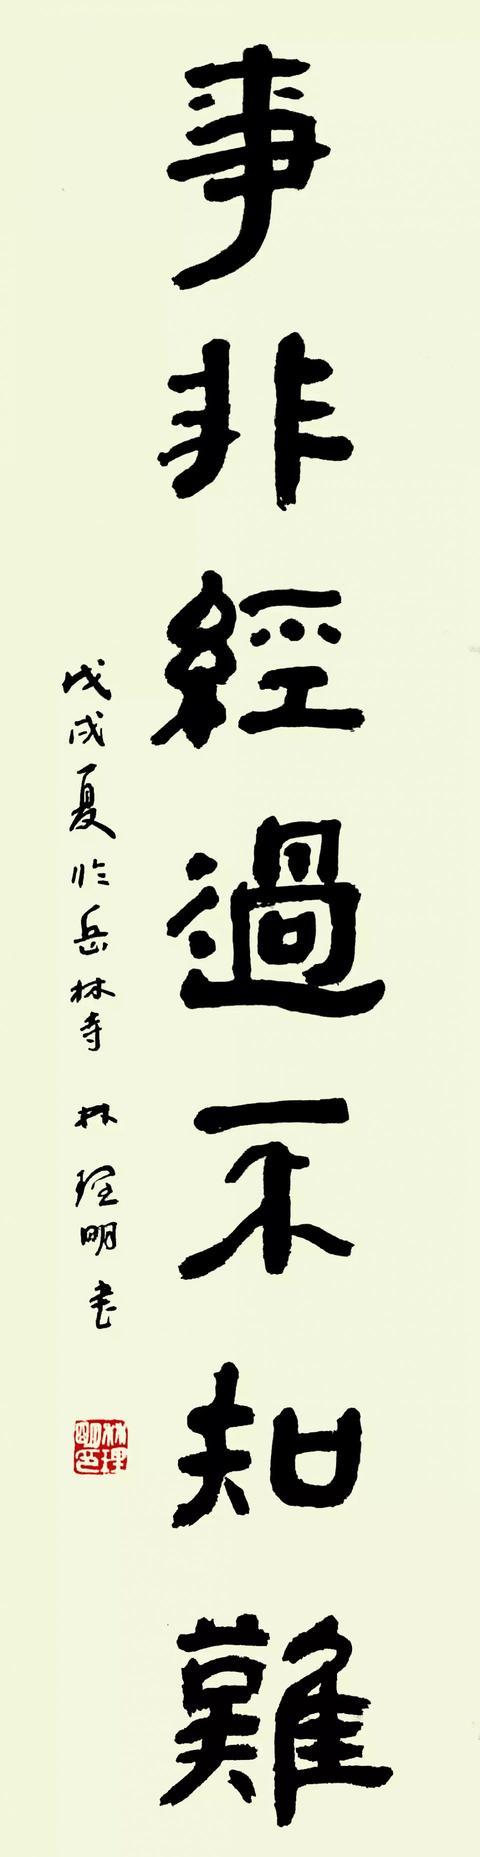 事非經過不知難
戊戌夏於岳林寺 林理明书
林理明印